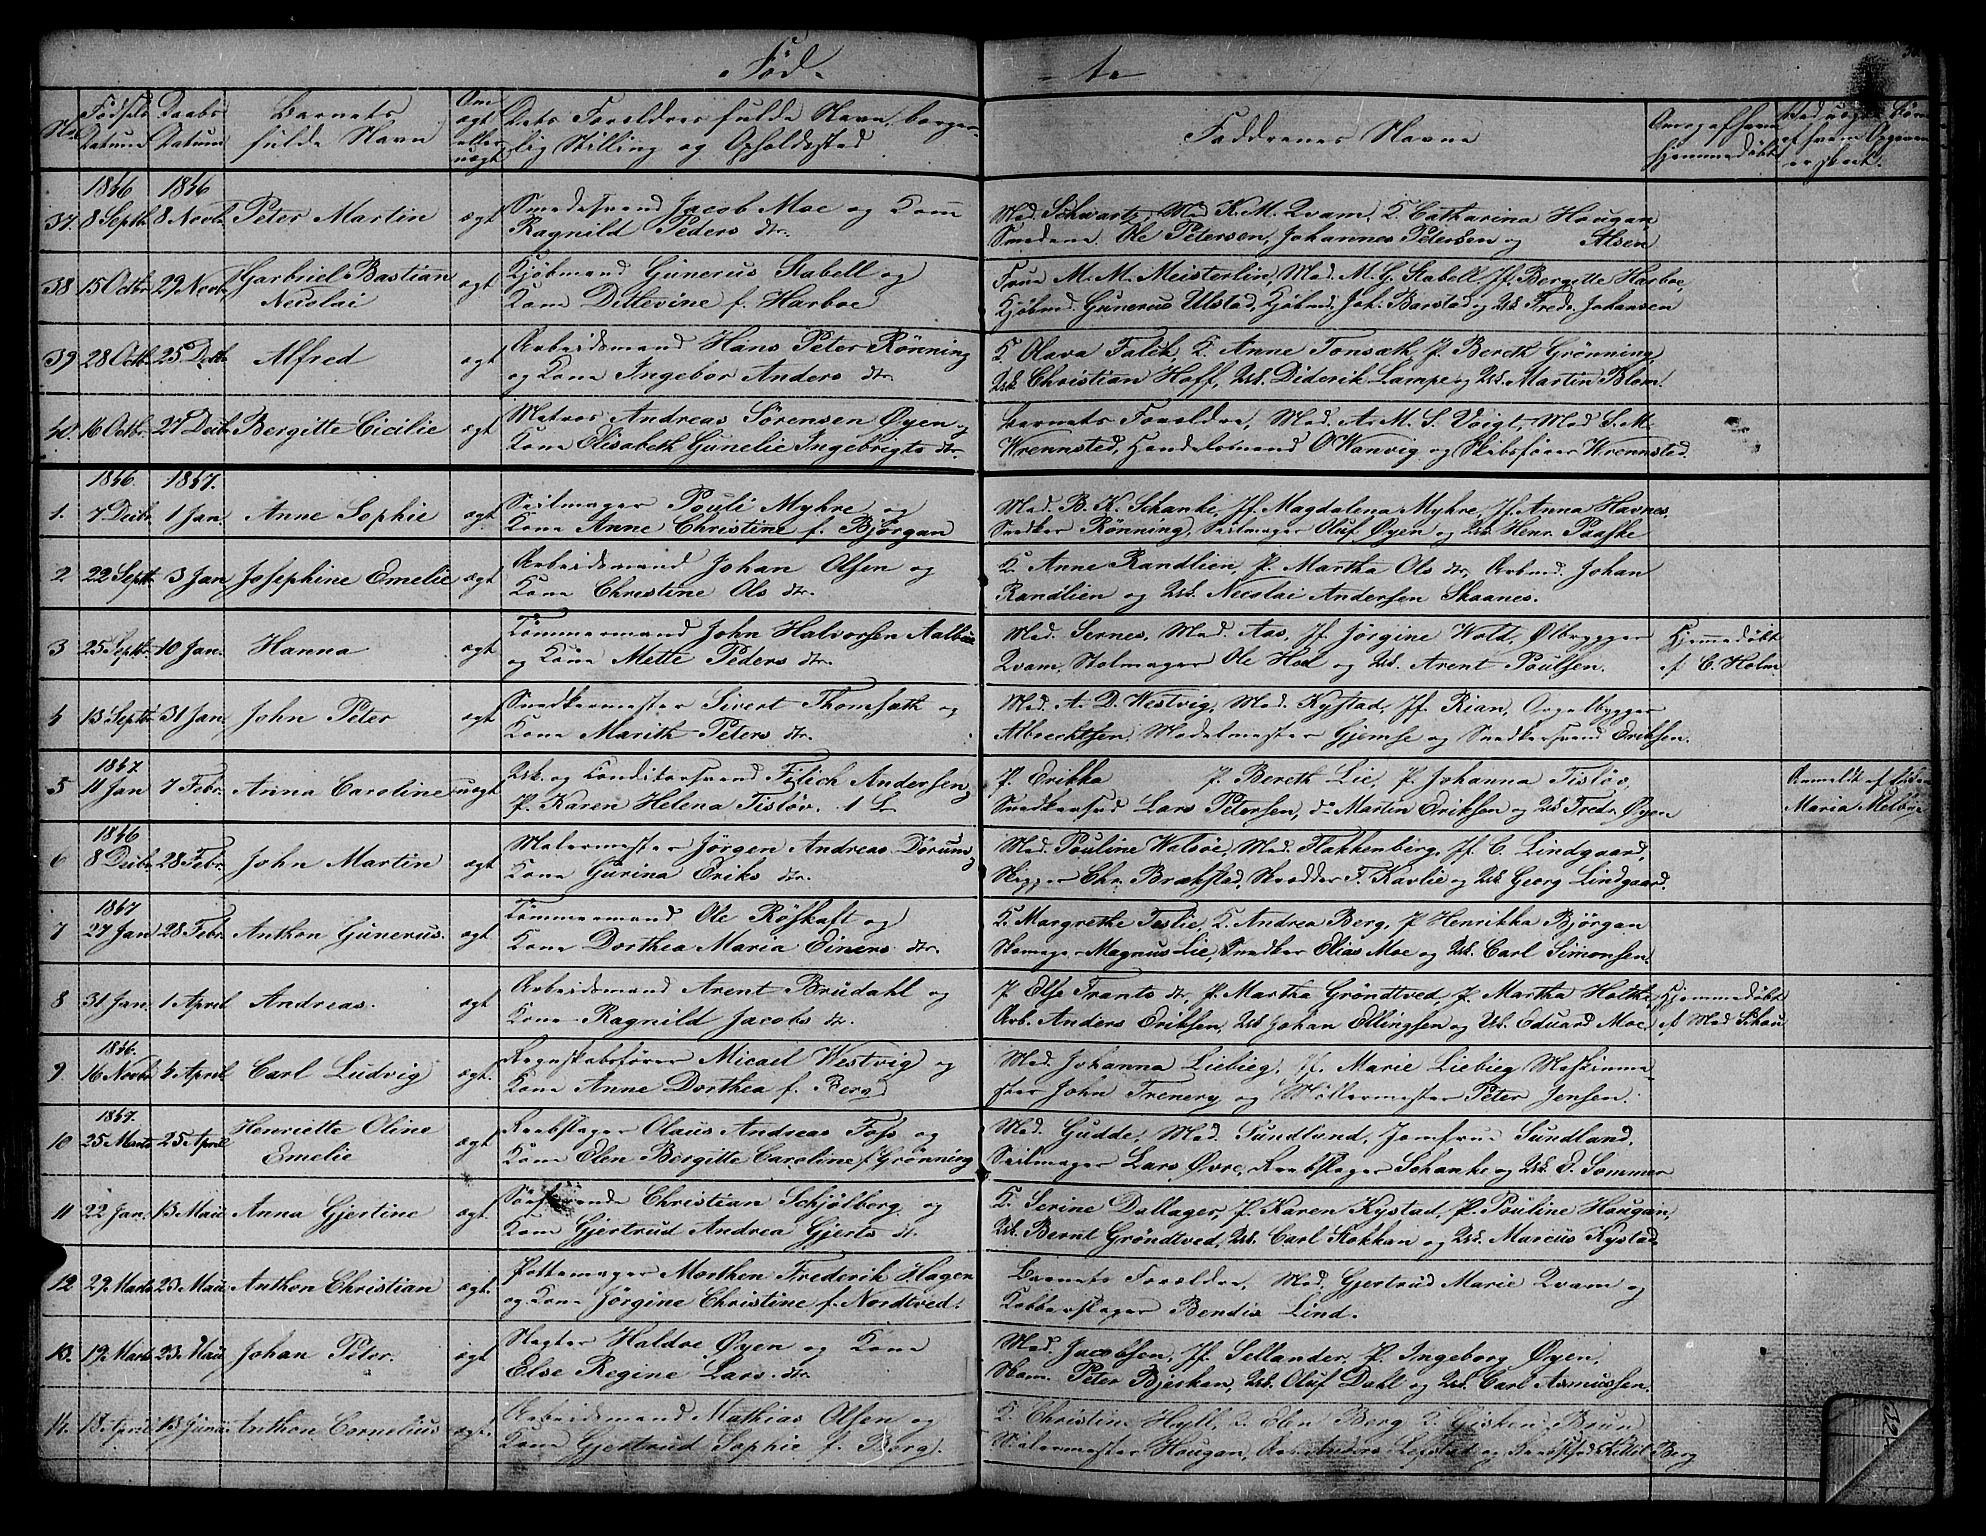 Fød-
-te
No
Fødsels Datum
Daabs Datum
Barnets fulde Navn
Om ægte eller uægt
Dets Forældres fulde Navn, borger-
lig Stilling og Opholdssted
Faddrenes Navne
1846 1846
37. 8 Septb. 8 Novb. Peter Martin ægt Smedesvend Jacob Moe og Kone
Ragnild Peders dtr.
Mad. Schwartz, Mad. K. M. Qvam, K. Catharina Hougan,
Smedene Ole Petersen, Johannes Petersen og Alsen
38 15 Octbr. 29 Novb. Garbriel Bastian Nicolai ægt Kjøbmand Gunerus Stabell og
Kone Ditlevine f. Harboe
Frue M. M. Meisterlin, Mad. M. G. Stabell, Jf. Bergitte Harboe,
Kjøbmd. Gunerus Ulstad, Kjøbmd. Joh. Barstad og Usk. Fredr. Johansen
39 28 Octb. 25 Decb. Alfred ægt Arbeidsmand Hans Peter Rønning
og Kone Ingebor Anders dtr.
K. Olava Falch, K. Anne Tonsæth, P. Bereth Grønning,
Usk. Christian Hoff, Usk. Diderik Lampe og Usk. Martin Blom.
40. 16 Octbr. 27 Decb. Bergitte Cicilie ægt Matros Andreas Sørensen Øyen og
Kone Elisabeth Gunelie Ingebrigts dtr.
Barnets Forældre, Mad. A. M. S. Voigt, Mad. S. M.
Wrennsted, Handelsmand O Wanvig og Skibsfører Wrennsted.
1846 1847.
1. 7 Decbr. 1 Jan. Anne Sophie ægt Seilmager Pouli Myhre og
Kone Anne Christine f. Bjørgan
Mad. B. K. Schanke, Jf. Magdalena Myhre, Jf. Anna Havnes,
Snedker Rønning, Seilmager Oluf Øyen og Usk. Henr. Paaske
2 22 Septb. 3 Jan. Josephine Emelie ægt Arbeidsmand Johan Olsen og
Kone Christine Ols dtr.
K. Anne Randlien, P. Martha Ols dtr, Arbmd. Johan
Randlien og Usk. Nicolai Andersen Skaanes.
3 25 Septb. 10 Jan. Hanna ægt Tømmermand John Halvorsen
og Kone Mette Peders dtr.
Mad. Sernes, Mad. Aas, Jf. Jørgine Wold, Ølbrygger
Qvam, Stolmager Ole Hoel og Usk. Arent Poulsen.
Hjemmedøbt
af C. Holm
4 13 Septb. 31 Jan. John Peter ægt Snedkermester Sivert Thomsæth og
Kone Marith Peters dtr.
Mad. A. D. Westvig, Mad. Kystad, Jf. Rian, Orgelbygger
Albrechtsen, Modelmester Gjemse og Snedkersvend Eriksen.
1847.
5 11 Jan 7 Febr. Anna Caroline uægt Usk. og Konditorsvend Folich Andersen,
P. Karen Helena Tisløv. 1 L
P. Erikka P. Bereth Lie, P. Johanna Tisløv,
Snedkersvd. Lars Petersen, do Martin Eriksen og Usk Fredr. Øyen
Anmeldt af
Maria
1846
6 8 Decbr. 28 Febr. John Martin ægt Malermester Jørgen Andreas Dørum
Kone Gurina Eriks dtr.
Mad. Pauline Welsøe, Mad. Flakkenberg, Jf. C. Lindgaard,
Chr. Brækstad, F. Kavlie og Usk. Georg Lindgaard.
1847
7 27 Jan 28 Febr. Anthon Gunerus. ægt. Tømmermand Ole Røskaft og
Kone Dorthea Maria Einers dtr.
K. Margrethe Teslie, K. Andrea Berg, P. Henrikka Bjørgan
Skomager Magnus Lie, Snedker Elias Moe og Usk. Carl Simonsen.
8 31 Jan. 1 April Andreas. ægt Arbeidsmand Arent Brudahl og
Kone Ragnild Jacobs dtr.
P. Else Frants dtr, P. Martha Grøndtved, P. Martha Holtke,
Arb. Anders Eriksen, Usk Johan Ellingsen og Usk. Eduard Moe
Hjemmedøbt
af Mad Schou
1846.
9 16 Novbr. 4 April Carl Ludvig ægt. Regnskabsfører Micael Westvig og
Kone Anne Dorthea f. Berg
Mad. Johanna Liebieg, Jf. Marie Liebieg Maskinme-
ster John Trenery og Møllermester Peter Jensen.
1847.
10 25 Marts 25 April Henriette Oline Emelie ægt Reebslager Olaus Andreas Foss og
Kone Elen Bergitte Caroline f. Grønning
Mad. Gudde, Mad. Sundlund, Jomfrue Sundland,
Seilmager Lars Øvre, Reebslager Schanke og Usk. D. Sommer
11 22 Jan. 13 Maii Anna Gjertine ægt. Søefarende Christian Schjølberg og
Kone Gjertrud Andrea Gjerts dt.
K. Serine Dallager, P. Karen Kystad, P. Pouline Hougan,
Usk. Bernt Grøndtved, Usk. Carl Stokkan og Usk. Marcus Kystad
12 29 Marts 23 Maii Anthon Christian ægt. Pottemager Morthen Frederik Hagen
og Kone Jørgine Christine f. Nordtved.
Barnets Forældre, Mad. Gjertrud Marie Qvam og
Kobberslager Bendix Lind.
13. 19 Marts 23 Maii Johan Peter. ægt Slagter Haldor Øyen og Kone
Else Regine Lars dtr.
Mad. Jacobsen, Jf. Sellander, P. Ingeborg Øyen,
Skom. Peter Bjerkan, Usk. Oluf Dahl og Usk. Carl Asmussen.
14. 18 April 13 Junii Anthon Cornelius ægt. Arbeidsmand Mathias Olsen og
Kone Gjertrud Sophie f. Berg.
K. Christine Hyll, K. Elen Berg, K. Gisken Bruun
Malermester Hougan, Anders og Berg